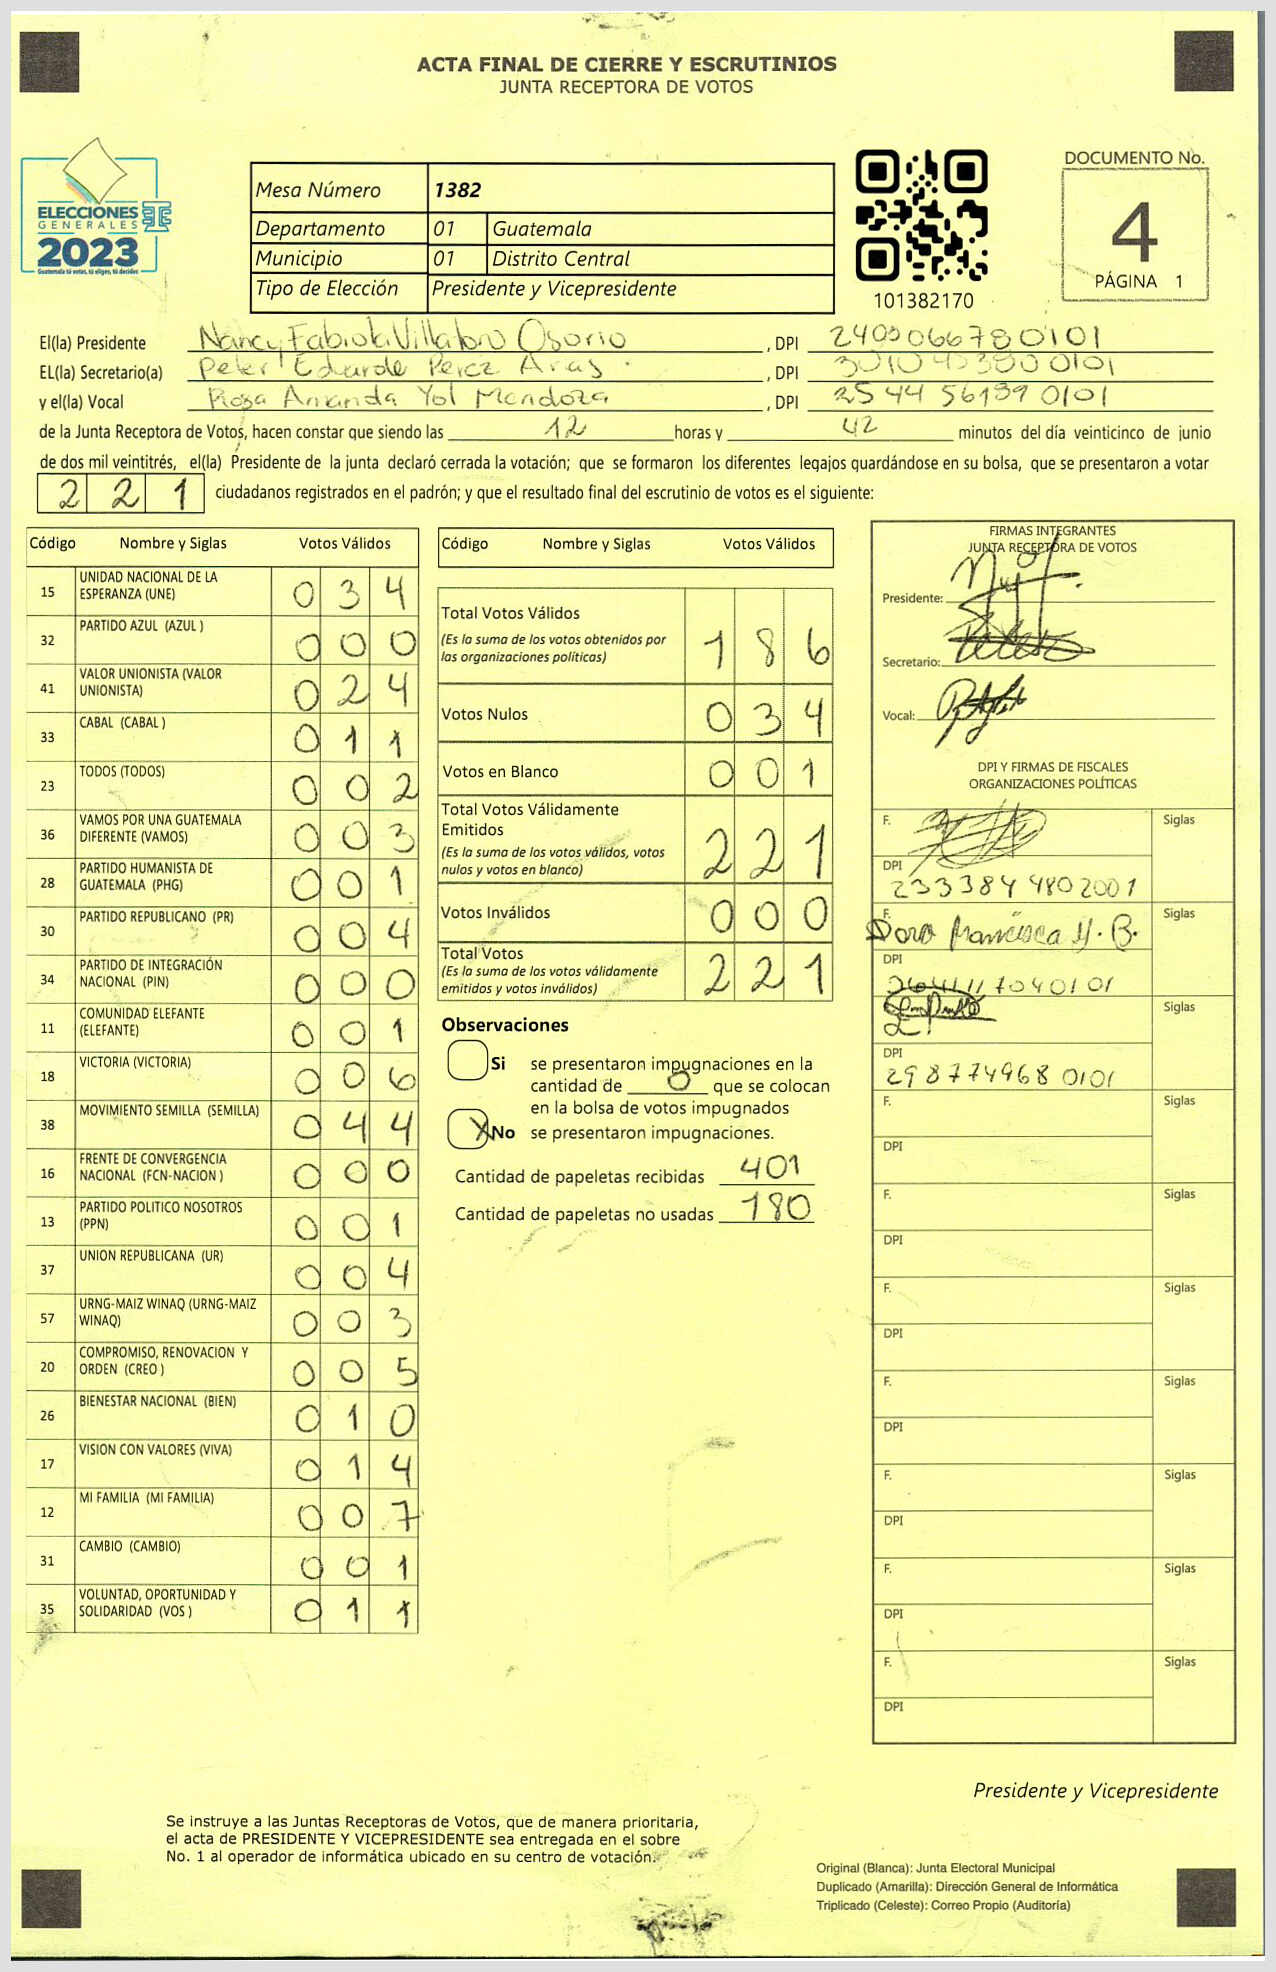 ACTA FINAL DE CIERRE Y ESCRUTINIOS
JUNTA RECEPTORA DE VOTOS
ELECCIONES
GENERALES
2023
Guatemala tú votas, tú eliges, tú decides
Mesa Número 1382
Departamento 01 Guatemala
Municipio 01 Distrito Central
Tipo de Elección Presidente y Vicepresidente
101382170
DOCUMENTO No.
4
PÁGINA 1
El(la) Presidente Nancy Fabiola Villatoro Osorio, DPI 2409066780101
EL(la) Secretario(a) Peter Eduardo Perez Aras, DPI
y el(la) Vocal Rosa Amanda Yol Mendoza, DPI 2544561390101
de la Junta Receptora de Votos, hacen constar que siendo las 12 horas y 42 minutos del día veinticinco de junio
de dos mil veintitrés, el(la) Presidente de la junta declaró cerrada la votación; que se formaron los diferentes legajos guardándose en su bolsa, que se presentaron a votar
221 ciudadanos registrados en el padrón; y que el resultado final del escrutinio de votos es el siguiente:
Código Nombre y Siglas Votos Válidos
15 UNIDAD NACIONAL DE LA ESPERANZA (UNE) 034
32 PARTIDO AZUL (AZUL ) 000
41 VALOR UNIONISTA (VALOR UNIONISTA) 024
33 CABAL (CABAL ) 011
23 TODOS (TODOS) 002
36 VAMOS POR UNA GUATEMALA DIFERENTE (VAMOS) 003
28 PARTIDO HUMANISTA DE GUATEMALA (PHG) 001
30 PARTIDO REPUBLICANO (PR) 004
34 PARTIDO DE INTEGRACIÓN NACIONAL (PIN) 000
11 COMUNIDAD ELEFANTE (ELEFANTE) 001
18 VICTORIA (VICTORIA) 006
38 MOVIMIENTO SEMILLA (SEMILLA) 044
16 FRENTE DE CONVERGENCIA NACIONAL (FCN-NACION ) 000
13 PARTIDO POLITICO NOSOTROS (PPN) 001
37 UNION REPUBLICANA (UR) 004
57 URNG-MAIZ WINAQ (URNG-MAIZ WINAQ) 003
20 COMPROMISO, RENOVACION Y ORDEN (CREO ) 005
26 BIENESTAR NACIONAL (BIEN) 010
17 VISION CON VALORES (VIVA) 014
12 MI FAMILIA (MI FAMILIA) 007
31 CAMBIO (CAMBIO) 001
35 VOLUNTAD, OPORTUNIDAD Y SOLIDARIDAD (VOS ) 011
Código Nombre y Siglas Votos Válidos
Total Votos Válidos 186
(Es la suma de los votos obtenidos por
las organizaciones políticas)
Votos Nulos 034
Votos en Blanco 001
Total Votos Válidamente
Emitidos 221
(Es la suma de los votos válidos, votos
nulos y votos en blanco)
Votos Inválidos 000
Total Votos 221
(Es la suma de los votos válidamente
emitidos y votos inválidos)
Observaciones
Si se presentaron impugnaciones en la
cantidad de 0 que se colocan
en la bolsa de votos impugnados
X No se presentaron impugnaciones.
Cantidad de papeletas recibidas 401
Cantidad de papeletas no usadas 180
FIRMAS INTEGRANTES
JUNTA RECEPTORA DE VOTOS
Presidente:
Secretario:
Vocal:
DPI Y FIRMAS DE FISCALES
ORGANIZACIONES POLÍTICAS
F. Siglas
DPI
2333844802001
F. Francisca Y. B. Siglas
DPI
2641117040101
Siglas
DPI
2987749680101
F. Siglas
DPI
F. Siglas
DPI
F. Siglas
DPI
F. Siglas
DPI
F. Siglas
DPI
F. Siglas
DPI
F. Siglas
DPI
Presidente y Vicepresidente
Se instruye a las Juntas Receptoras de Votos, que de manera prioritaria,
el acta de PRESIDENTE Y VICEPRESIDENTE sea entregada en el sobre
No. 1 al operador de informática ubicado en su centro de votación.
Original (Blanca): Junta Electoral Municipal
Duplicado (Amarilla): Dirección General de Informática
Triplicado (Celeste): Correo Propio (Auditoría)